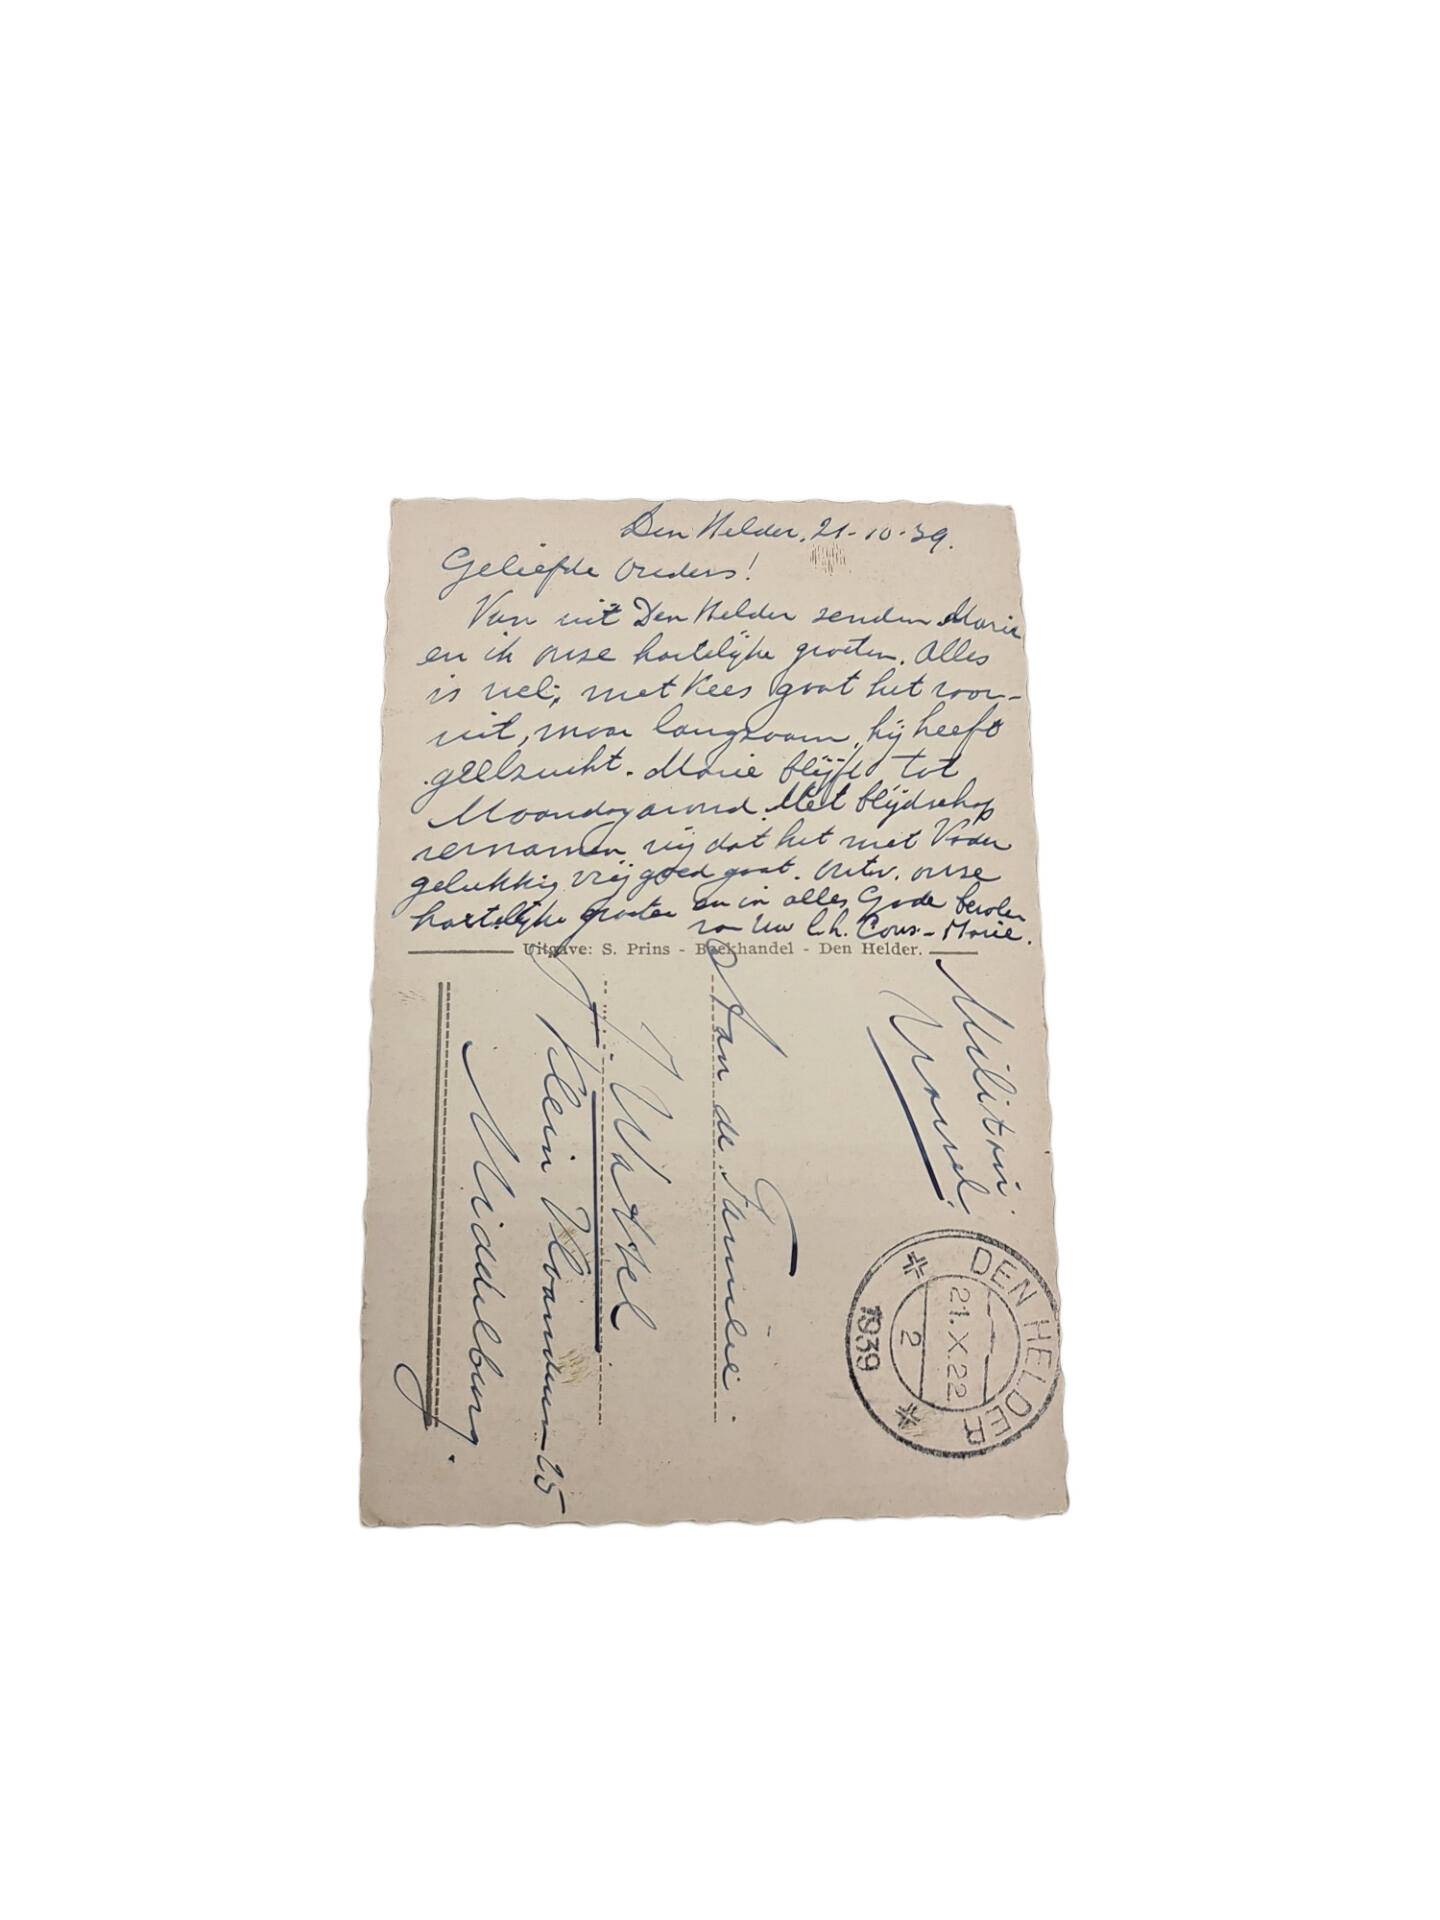 Den Helder, 21-10-39.
Geliefde Ouders!
Van uit Den Helder zenden Marie
en ik onze hartelijke groeten. Alles
is wel, met Kees gaat het voor-
uit, maar langzaam, hij heeft
geelzucht. Marie blijft tot
Maandagavond. Met blijdschap
vernamen wij dat het met Vader
gelukkig vrij goed gaat. Ontv. onze
hartelijke groeten en in alles Gode bevolen
van Uw l.h. Marie.
Uitgave: S. Prins - Boekhandel - Den Helder.
Militair
Aan de Familie
J.
Klein Vlaanderen 25
Middelburg.
DEN HELDER
21.X.22
2
1939